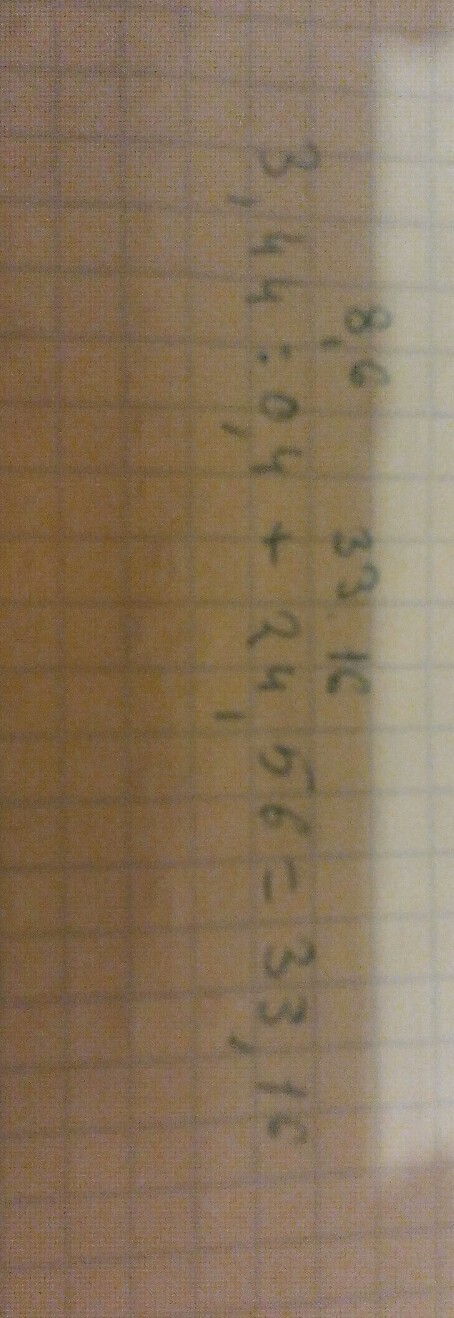 8,6 33.16
3,44 : 0,4 + 24,56 = 33,16